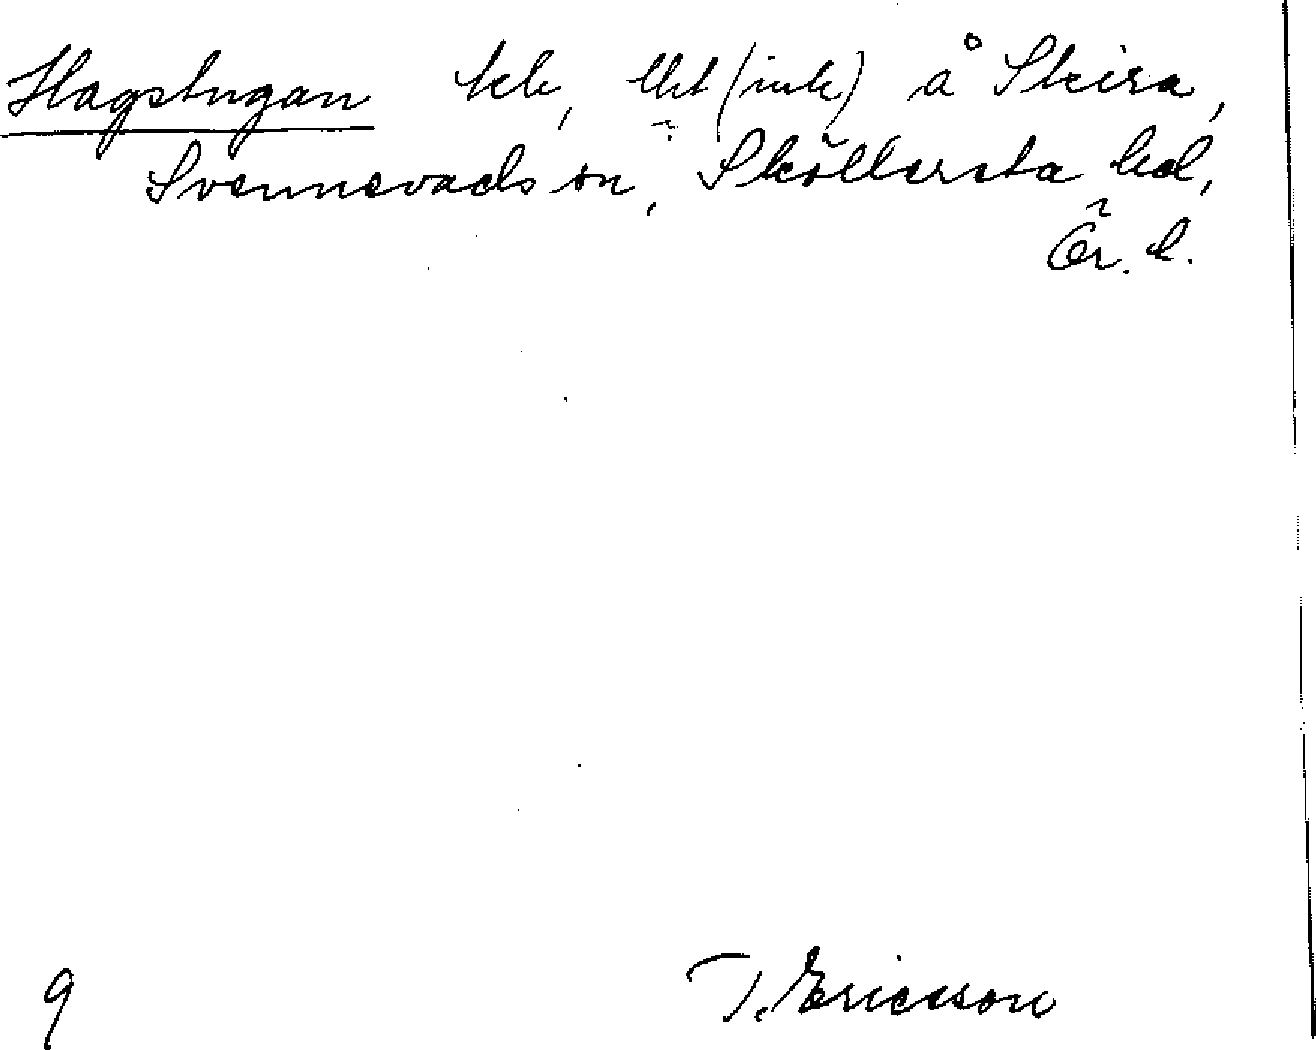 Hagstugan lht (ink) å Skira,
Svennevads sn, Sköllersta hd,
Ör. l.
9 T. Ericsson